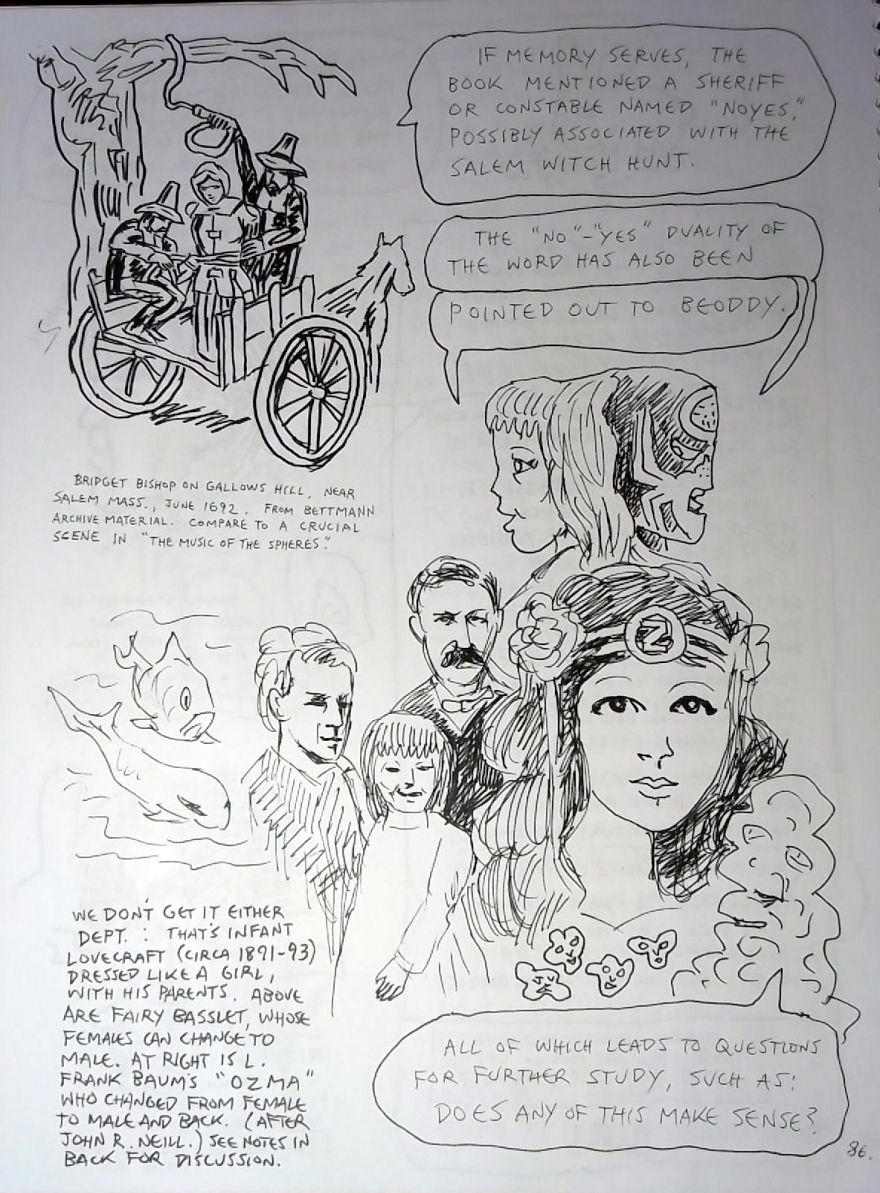 IF MEMORY SERVES, THE
BOOK MENTIONED A SHERIFF
OR CONSTABLE NAMED "NOYES,"
POSSIBLY ASSOCIATED WITH THE
SALEM WITCH HUNT.
THE "NO"-"YES" DUALITY OF
THE WORD HAS ALSO BEEN
POINTED OUT TO BEODDY.
BRIDGET BISHOP ON GALLOWS HILL, NEAR
SALEM MASS., JUNE 1692. FROM BETTMANN
ARCHIVE MATERIAL. COMPARE TO A CRUCIAL
SCENE IN "THE MUSIC OF THE SPHERES."
OZ
WE DON'T GET IT EITHER
DEPT.: THAT'S INFANT
LOVECRAFT (CIRCA 1891-93)
DRESSED LIKE A GIRL,
WITH HIS PARENTS. ABOVE
ARE FAIRY BASSLET, WHOSE
FEMALES CAN CHANGE TO
MALE. AT RIGHT IS L.
FRANK BAUM'S "OZMA"
WHO CHANGED FROM FEMALE
TO MALE AND BACK. (AFTER
JOHN R. NEILL.) SEE NOTES IN
BACK FOR DISCUSSION.
ALL OF WHICH LEADS TO QUESTIONS
FOR FURTHER STUDY, SUCH AS:
DOES ANY OF THIS MAKE SENSE?
86.